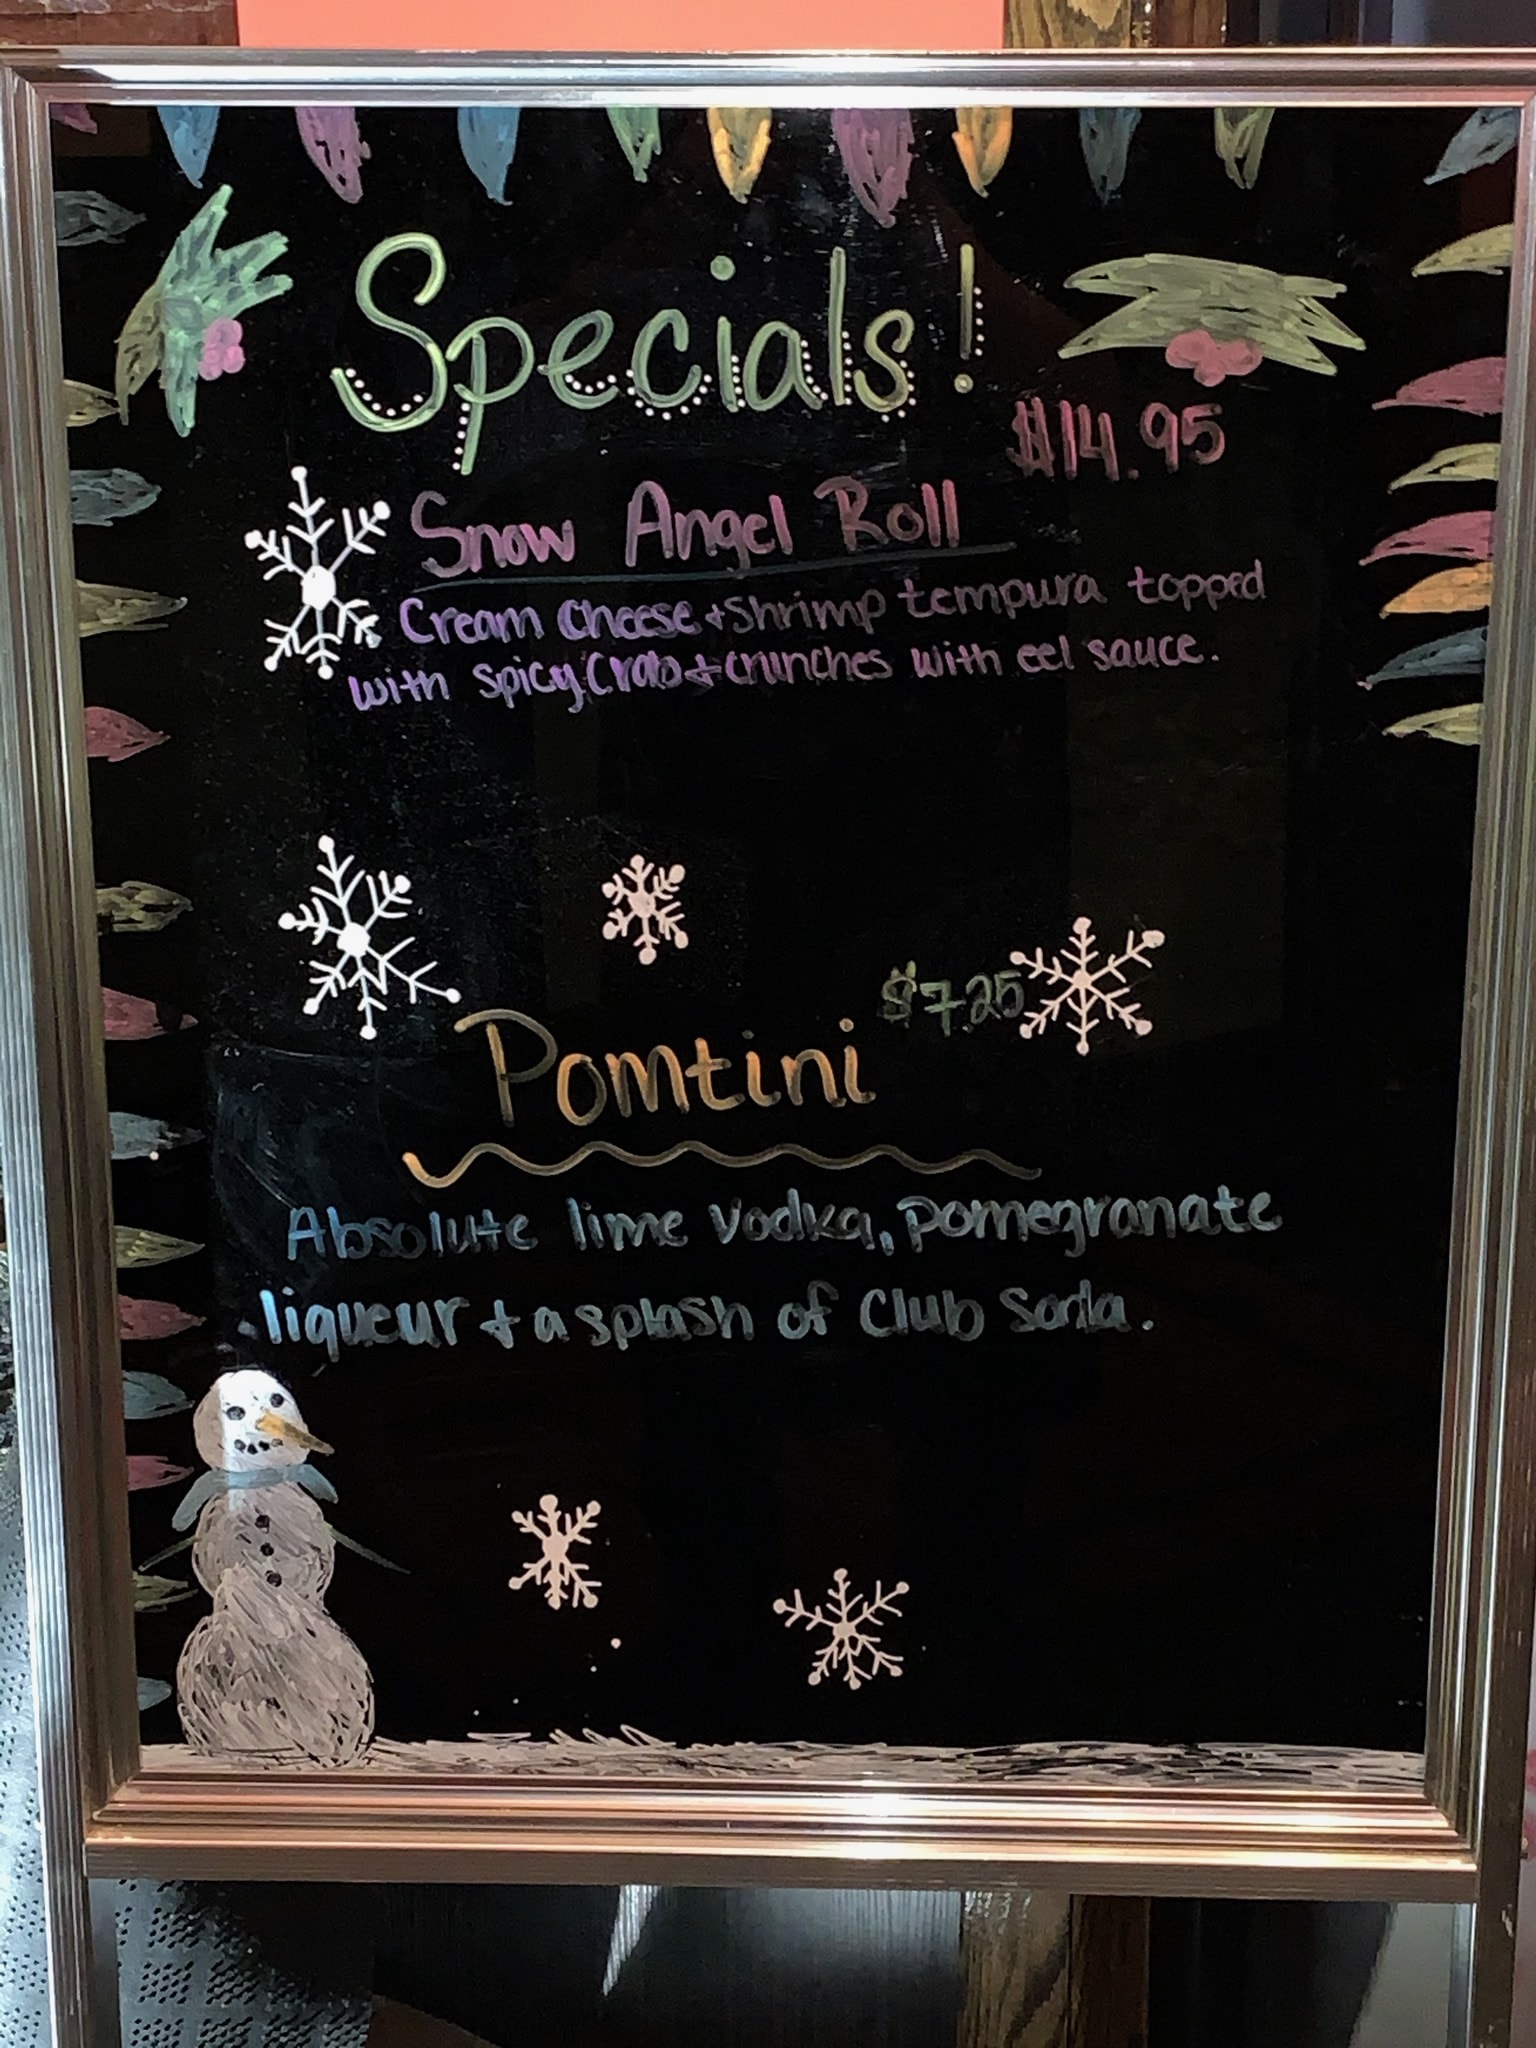 Specials!
$14.95
Snow Angel Roll
Cream Cheese + Shrimp tempura topped
with spicy Crab + crunches with eel sauce.
$7.25
Pomtini
Absolute lime Vodka, pomegranate
liqueur + a splash of Club Soda.